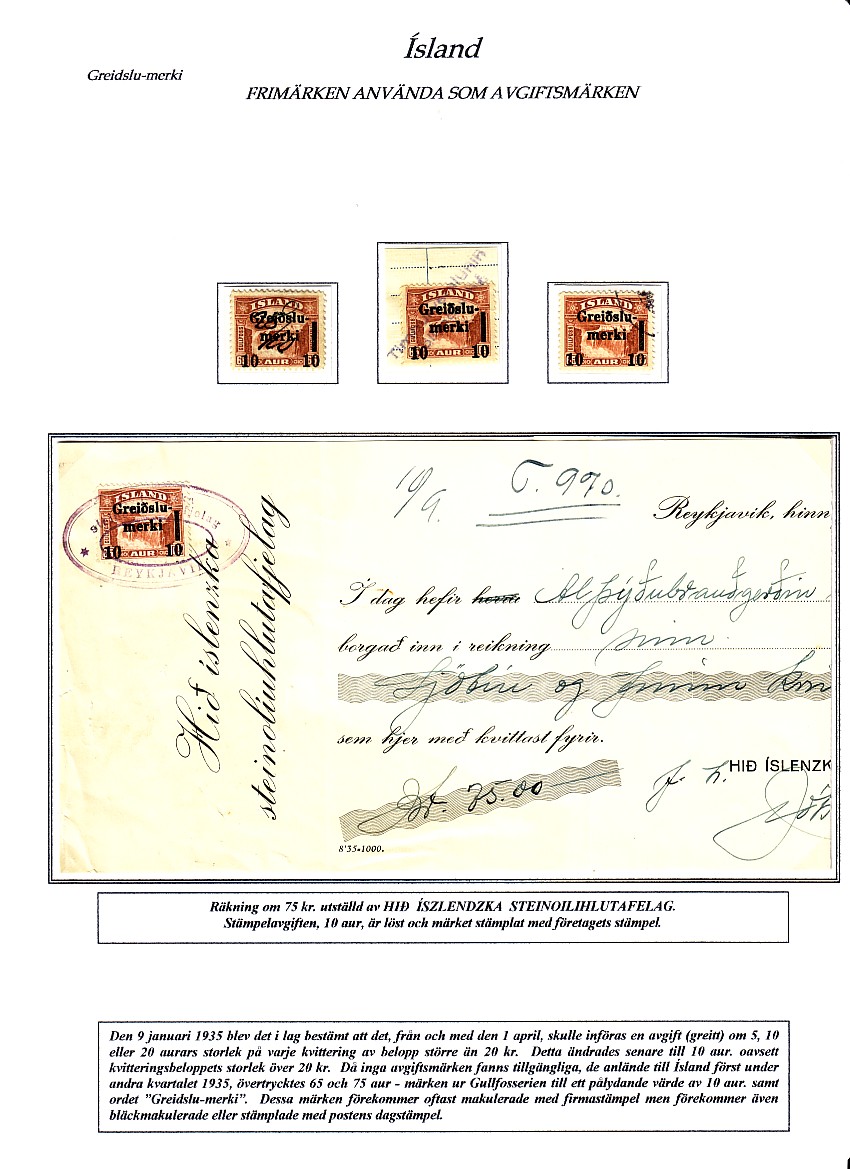 Ísland
Greidslu-merki
FRIMÄRKEN ANVÄNDA SOM AVGIFTSMÄRKEN
ÍSLAND
Greiðslu-
merki
10 AUR 10
ÍSLAND
Greiðslu-
merki
10 AUR 10
ÍSLAND
Greiðslu-
merki
10 AUR 10
ÍSLAND
Greiðslu-
merki
10 AUR 10
REYKJAVÍK
Hið íslenzka
steinolíuhlutafjelag
10/9. T. 990.
Reykjavik, hinn
Í dag hefir herra Alþýðubrauðgerðin
borgað inn í reikning sinn
Sjötíu og fimm Kr
sem hjer með kvittast fyrir.
Kr. 75.00
f. h. HIÐ ÍSLENZK
8'35-1000.
Räkning om 75 kr. utställd av HIÐ ÍSZLENDZKA STEINOILIHLUTAFELAG.
Stämpelavgiften, 10 aur, är löst och märket stämplat med företagets stämpel.
Den 9 januari 1935 blev det i lag bestämt att det, från och med den 1 april, skulle införas en avgift (greitt) om 5, 10
eller 20 aurars storlek på varje kvittering av belopp större än 20 kr. Detta ändrades senare till 10 aur. oavsett
kvitteringsbeloppets storlek över 20 kr. Då inga avgiftsmärken fanns tillgängliga, de anlände till Ísland först under
andra kvartalet 1935, övertrycktes 65 och 75 aur - märken ur Gullfosserien till ett pålydande värde av 10 aur. samt
ordet "Greidslu-merki". Dessa märken förekommer oftast makulerade med firmastämpel men förekommer även
bläckmakulerade eller stämplade med postens dagstämpel.